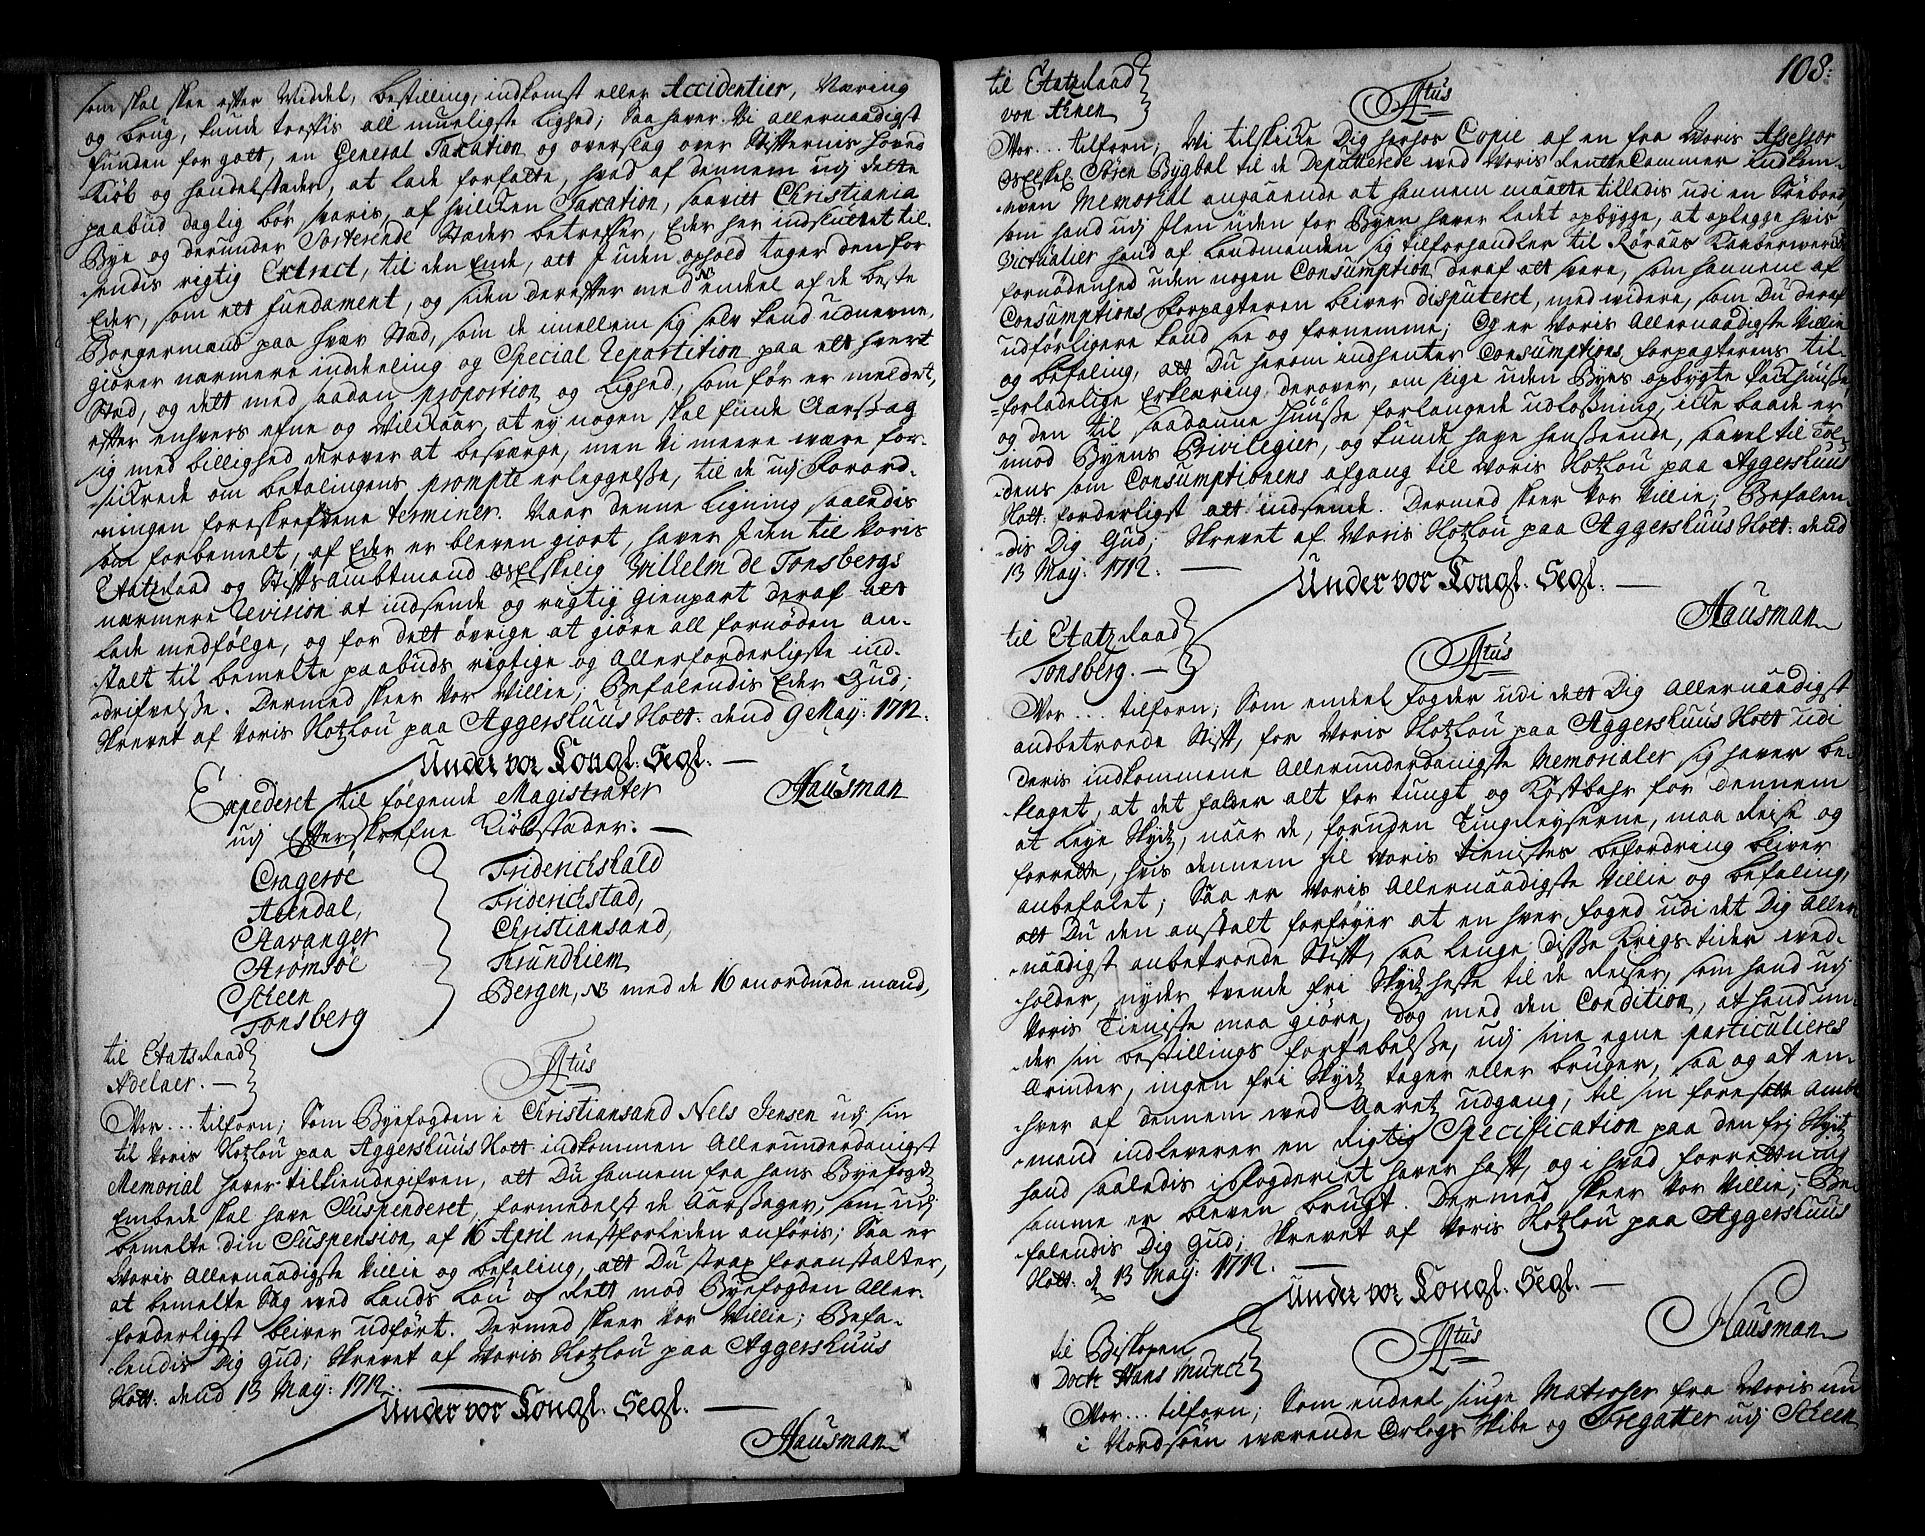 som skal skee efter Middel, bestilling, indkomst eller Accidentier, Næring
og brug, kunde treffis all mueligste lighed; Saa haver Vi allernaadigst
funden for gott, en General Taxation og overslag over Stifternis hoved
Kiöb og handelstæder, at lade forfatte, hvad af dennem udj dette
paabud daglig bör svaris, af hvilken Taxation, saavitt Christiania
Bye og derunder Sorterende Stæder betreffer, Eder her indsluttet til-
sendis rigtig Extract, til den Ende, att J uden ophold tager den for
Eder, som ett fundament, og siden derefter med endeel af de beste
Borgermænd paa hvær Stæd, som de imellem sig selv kand udnevne,
giörer nærmere inddeeling og Special Repartition paa ett hvert
Stæd, og dett med saadan proportion og Lighed, som för er meldet,
efter enhvers efne og Vilkaar, at ey nogen skal finde Aarsag
sig med billighed derover at besværge, men Vi meere være for-
sikrede om betalingens prompte erleggelse, til de udj Forord-
ningen foreskrefvene terminer. Naar denne Ligning saaledis
som forbemelt, af Eder er bleven giort, haver J den til Voris
EtatzRaad og Stiftsambtmand oselskelig Vilhelm de Tonsbergs
nærmere Revision at indsende og rigtig gienpart deraf att
lade medfölge, og for dett övrige at giöre all fornöden an-
stalt til bemelte paabuds rigtige og allerforderligste ind-
drifvelse. Dermed skeer Vor Villie; Befalendis Eder Gud;
Skrevet af Voris Slotzlou paa Aggershuus Slott. dend 9 May: 1712.
Under vor Kongl. Segl.
Hausman
Expederet til fölgende Magistrater
udj Efterskrefne Kiöbstæder:
Cragerøe
Arendal,
Stavanger
Strömsöe
Skeen
Tonsberg
Friderichshald
Friderichstad,
Christiansand,
Trundhiem
Bergen, NB med de 16 anordnede mænd,
til EtatsRaad
Adelaer.
Ftus
Vor... tilforn; Som Byefogden i Christiansand Nels Jensen udj sin
til Voris Slotzlou paa Aggershuus Slott indkommen Allerunderdanigst
Memorial haver tilkiendegifven, att Du hannem fra hans Byefogdz
Embede skal have Suspenderet, formedelst de Aarsager, som udj
bemelte din Suspension af 16 April nestforleden anföris; Saa er
Voris Allernaadigste Villie og befaling, att Du strax foranstalter,
at bemelte Sag ved Lands Lou og Rett mod Byefogden Aller-
forderligst bliver udfört. Dermed skeer Vor Villie; Befa-
lendis Dig Gud; Skrevet af Voris Slotzlou paa Aggershuus
Slott. dend 13 May: 1712.
Under vor Kongl. Segl.
Hausman
108:
til EtatzRaad
von Ahnen
Ftus
Vor... tilforn; Vi tilskicke Dig herhos Copie af en fra Voris Assessor
oselskel: Sören Bygbal til de Deputerede ved Voris RenteCammer indkom-
men Memorial angaaende at hannem maatte tilledis udi en Söeboed,
som hand udj Jlen uden for Byen haver ladet opbygge, at oplegge hvis
Victualier hand af Landmanden sig tilforhandler til Röraas Kaaberwerckz
fornödenhed uden nogen Consumption deraf att svare, som hannem af
Consumptions Forpagteren bliver disputeret, med videre, som Du deraf
udförligere kand see og fornemme; Og er Voris Allernaadigste Villie
og befaling, att Du herom indhenter Consumptions forpagterens til-
forladelige Erklæring derover, om slige uden Byen opbygte Pakhuusse
og den til saadanne Huusse forlangede udlosning, icke baade er
imod Byens Privilegier, og kunde have henseende, saavel til Tol-
dens som Consumptionens afgang til Voris Slotzlou paa Aggershuus
Slott. forderligst att indsende. Dermed skeer Vor Villie; Befalen-
dis Dig Gud; Skrevet af Voris Slotzlou paa Aggershuus Slott. dend
13 May: 1712.
Under vor Kongl. Segl.
Hausman
til EtatzRaad
Tonsberg.
Ftus
Vor... tilforn; Som endeel fogder udi dett Dig Allernaadigst
andbetroede Stift, for Voris Slotzlou paa Aggershuus Slott udi
deris indkommene Allerunderdanigste Memorialer sig haver be-
klaget, at det falder alt for tungt og Kostbahr for dennem
at leye Skydz, naar de, foruden Tingreyserne, maa Reise og
forrette, hvis dennem til Voris tienistes befordring bliver
anbefalet; Saa er Voris Allernaadigste Villie og befaling,
att Du den anstalt forföyer at en hver foged udi det Dig Aller-
naadigst anbetroede Stift, saa lenge disse Krigs tider ved-
holder, nyder tvende fri Skydz heste til de Reiser, som hand udj
Voris Tieniste maa giöre, Dog med den Condition, at hand un-
der sin bestillings forfabelse, udj sine egne particulieres
Arinder, ingen fri Skydz tager eller bruger, saa og at en-
hver af dennem ved Aaretz udgang, til sin foresatte Ambt
mand indleverer en Rigtig Specification paa den fri Skydz
hand saaledis i Fogderiet haver haft, og i hvad forretning
samme er bleven brugt. Dermed skeer Vor Villie; Be-
falendis Dig Gud; Skrevet af Voris Slotzlou paa Aggershuus
Slott. d 13 May: 1712.
Under vor Kongl. Segl.
Hausman
til Biskopen
Doct: Hans Munch
Ftus
Vor... tilforn; Som endeel siuge Matroser fra Voris nu
i Nordsöen værende Orlogs Skibe og Fregatter udj Skeen